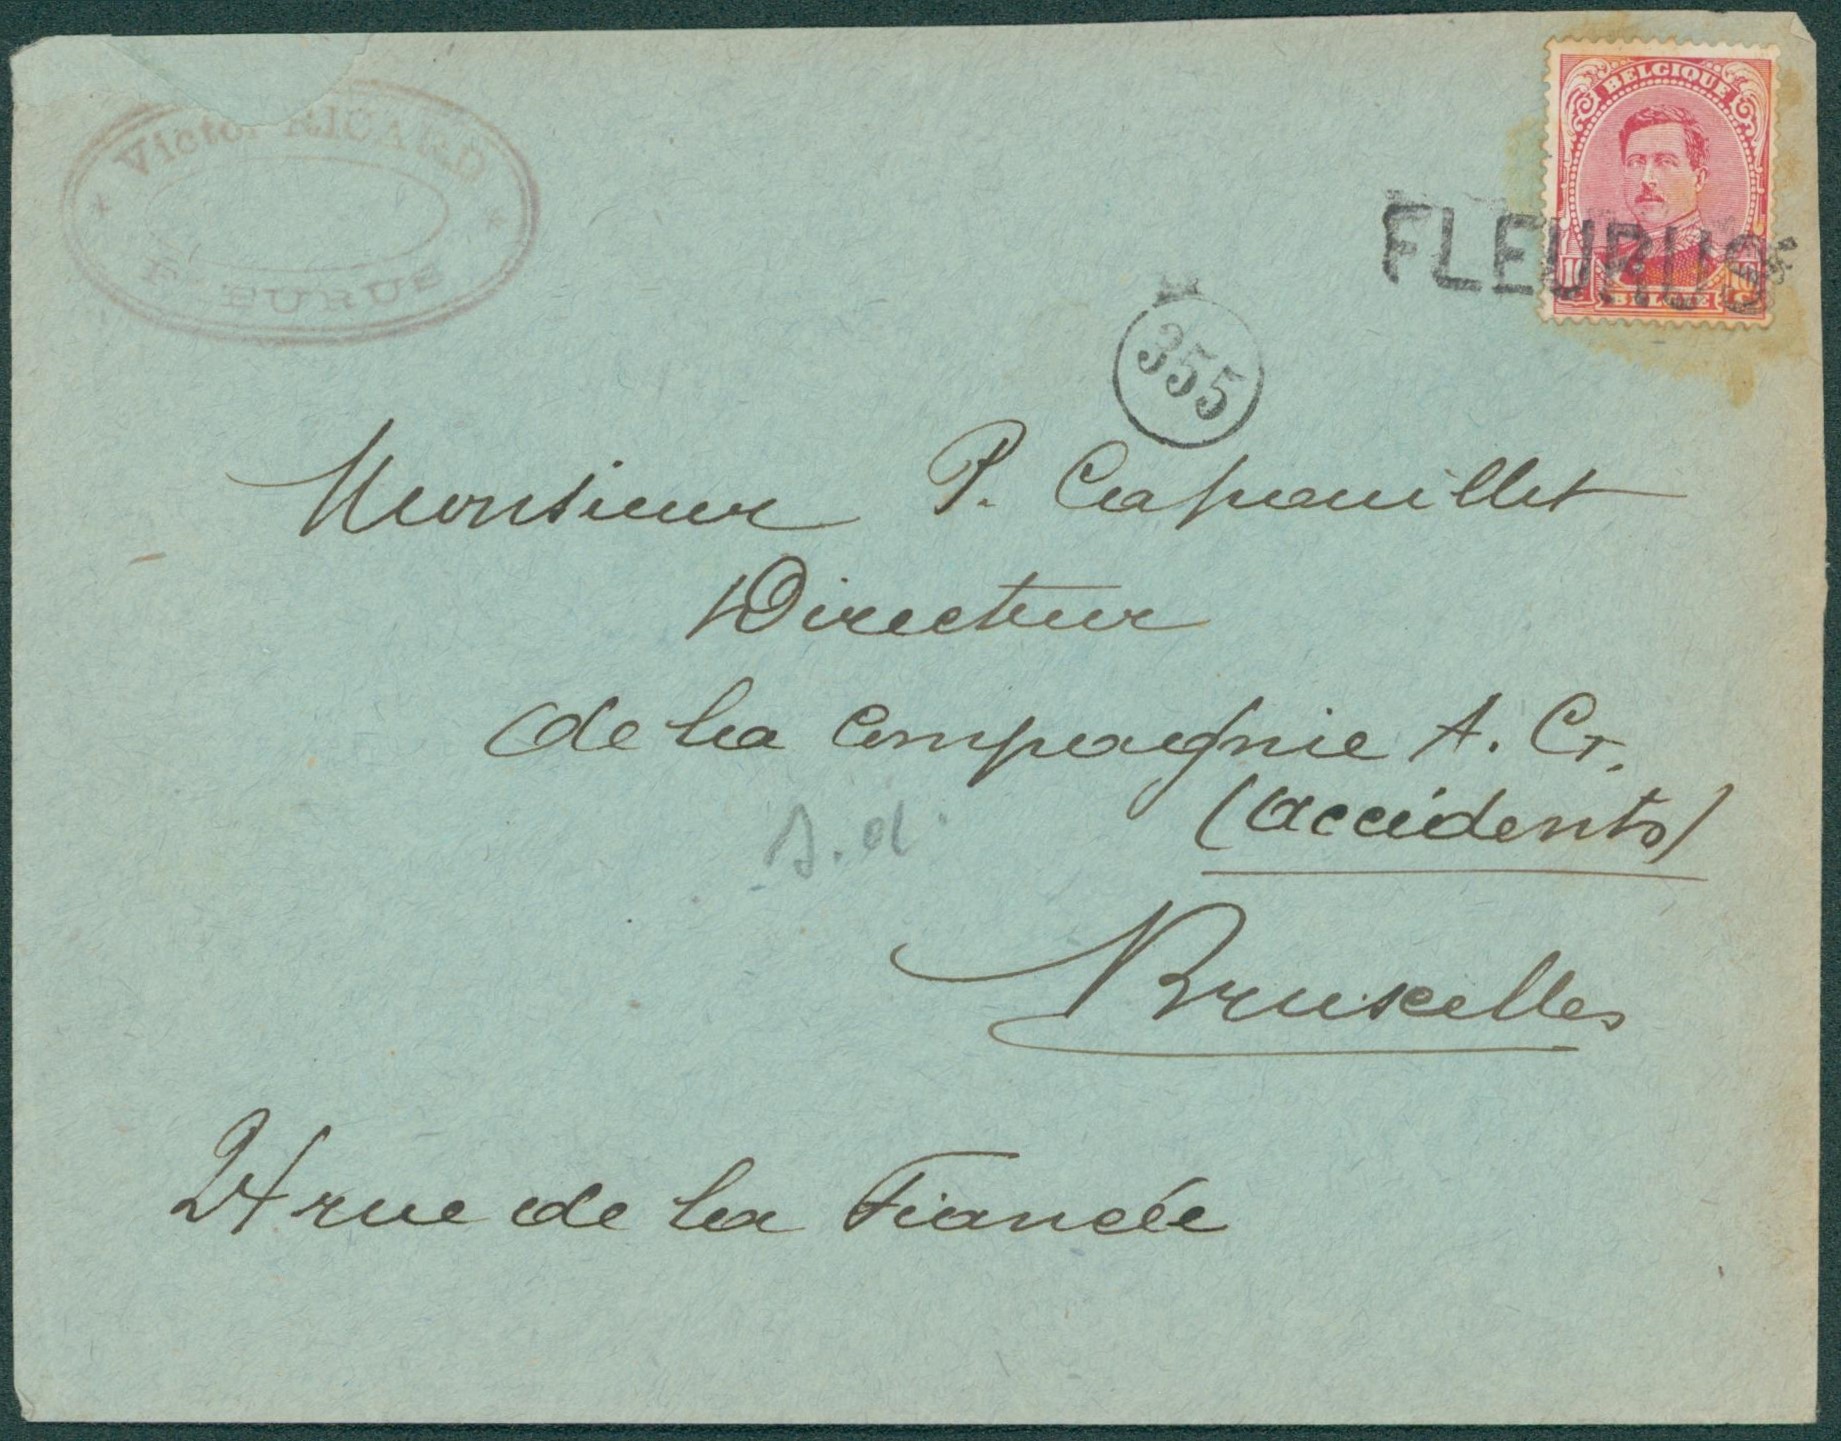 Victor RICARD
FLEURUS
BELGIQUE
FLEURUS
10
BELGIE
355
Monsieur P. Capouillet
Directeur
de la Compagnie A. G.
(accidents)
s.d.
Bruxelles
24 rue de la Fiancée